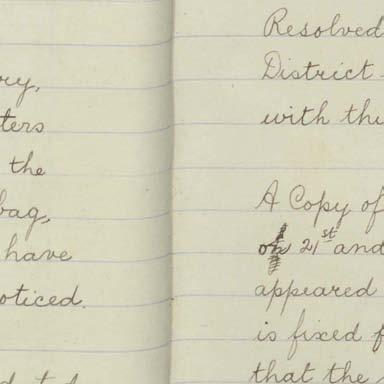 ters
the
bag,
have
oticed.
Resolved
District
with the
A Copy of
on 21st and
appeared
is fixed f
that the